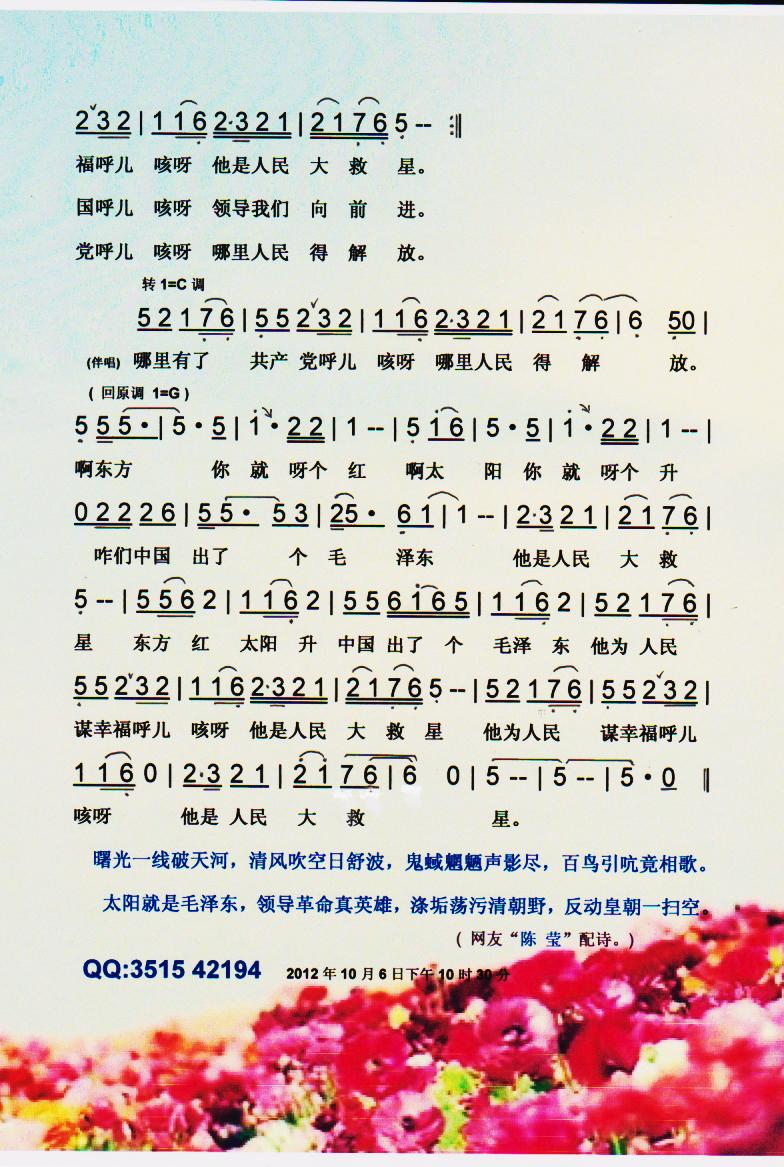 2 3 2 | 1 1 6 2·3 2 1 | 2 1 7 6 5 -- :‖
福呼儿 咳呀 他是人民 大 救 星。
国呼儿 咳呀 领导我们 向 前 进。
党呼儿 咳呀 哪里人民 得 解 放。
转 1=C 调
5 2 1 7 6 | 5 5 2 3 2 | 1 1 6 2·3 2 1 | 2 1 7 6 | 6 5 0 |
(伴唱) 哪里有了 共产 党呼儿 咳呀 哪里人民 得 解 放。
( 回原调 1=G )
5 5 5 · | 5 · 5 | 1 · 2 2 | 1 -- | 5 1 6 | 5 · 5 | 1 · 2 2 | 1 -- |
啊东方 你 就 呀个 红 啊太 阳 你 就 呀个 升
0 2 2 2 6 | 5 5 · 5 3 | 2 5 · 6 1 | 1 -- | 2·3 2 1 | 2 1 7 6 |
咋们中国 出了 个 毛 泽东 他是人民 大 救
5 -- | 5 5 6 2 | 1 1 6 2 | 5 5 6 1 6 5 | 1 1 6 2 | 5 2 1 7 6 |
星 东方 红 太阳 升 中国 出了 个 毛泽 东 他为 人民
5 5 2 3 2 | 1 1 6 2·3 2 1 | 2 1 7 6 5 -- | 5 2 1 7 6 | 5 5 2 3 2 |
谋幸福呼儿 咳呀 他是人民 大 救 星 他为人民 谋幸福呼儿
1 1 6 0 | 2·3 2 1 | 2 1 7 6 | 6 0 | 5 -- | 5 -- | 5 · 0 ‖
咳呀 他是 人民 大 救 星。
曙光一线破天河，清风吹空日舒波，鬼蜮魍魉声影尽，百鸟引吭竟相歌。
太阳就是毛泽东，领导革命真英雄，涤垢荡污清朝野，反动皇朝一扫空。
( 网友“陈 莹”配诗。)
QQ:3515 42194 2012 年 10 月 6 日下午 10 时 30 分